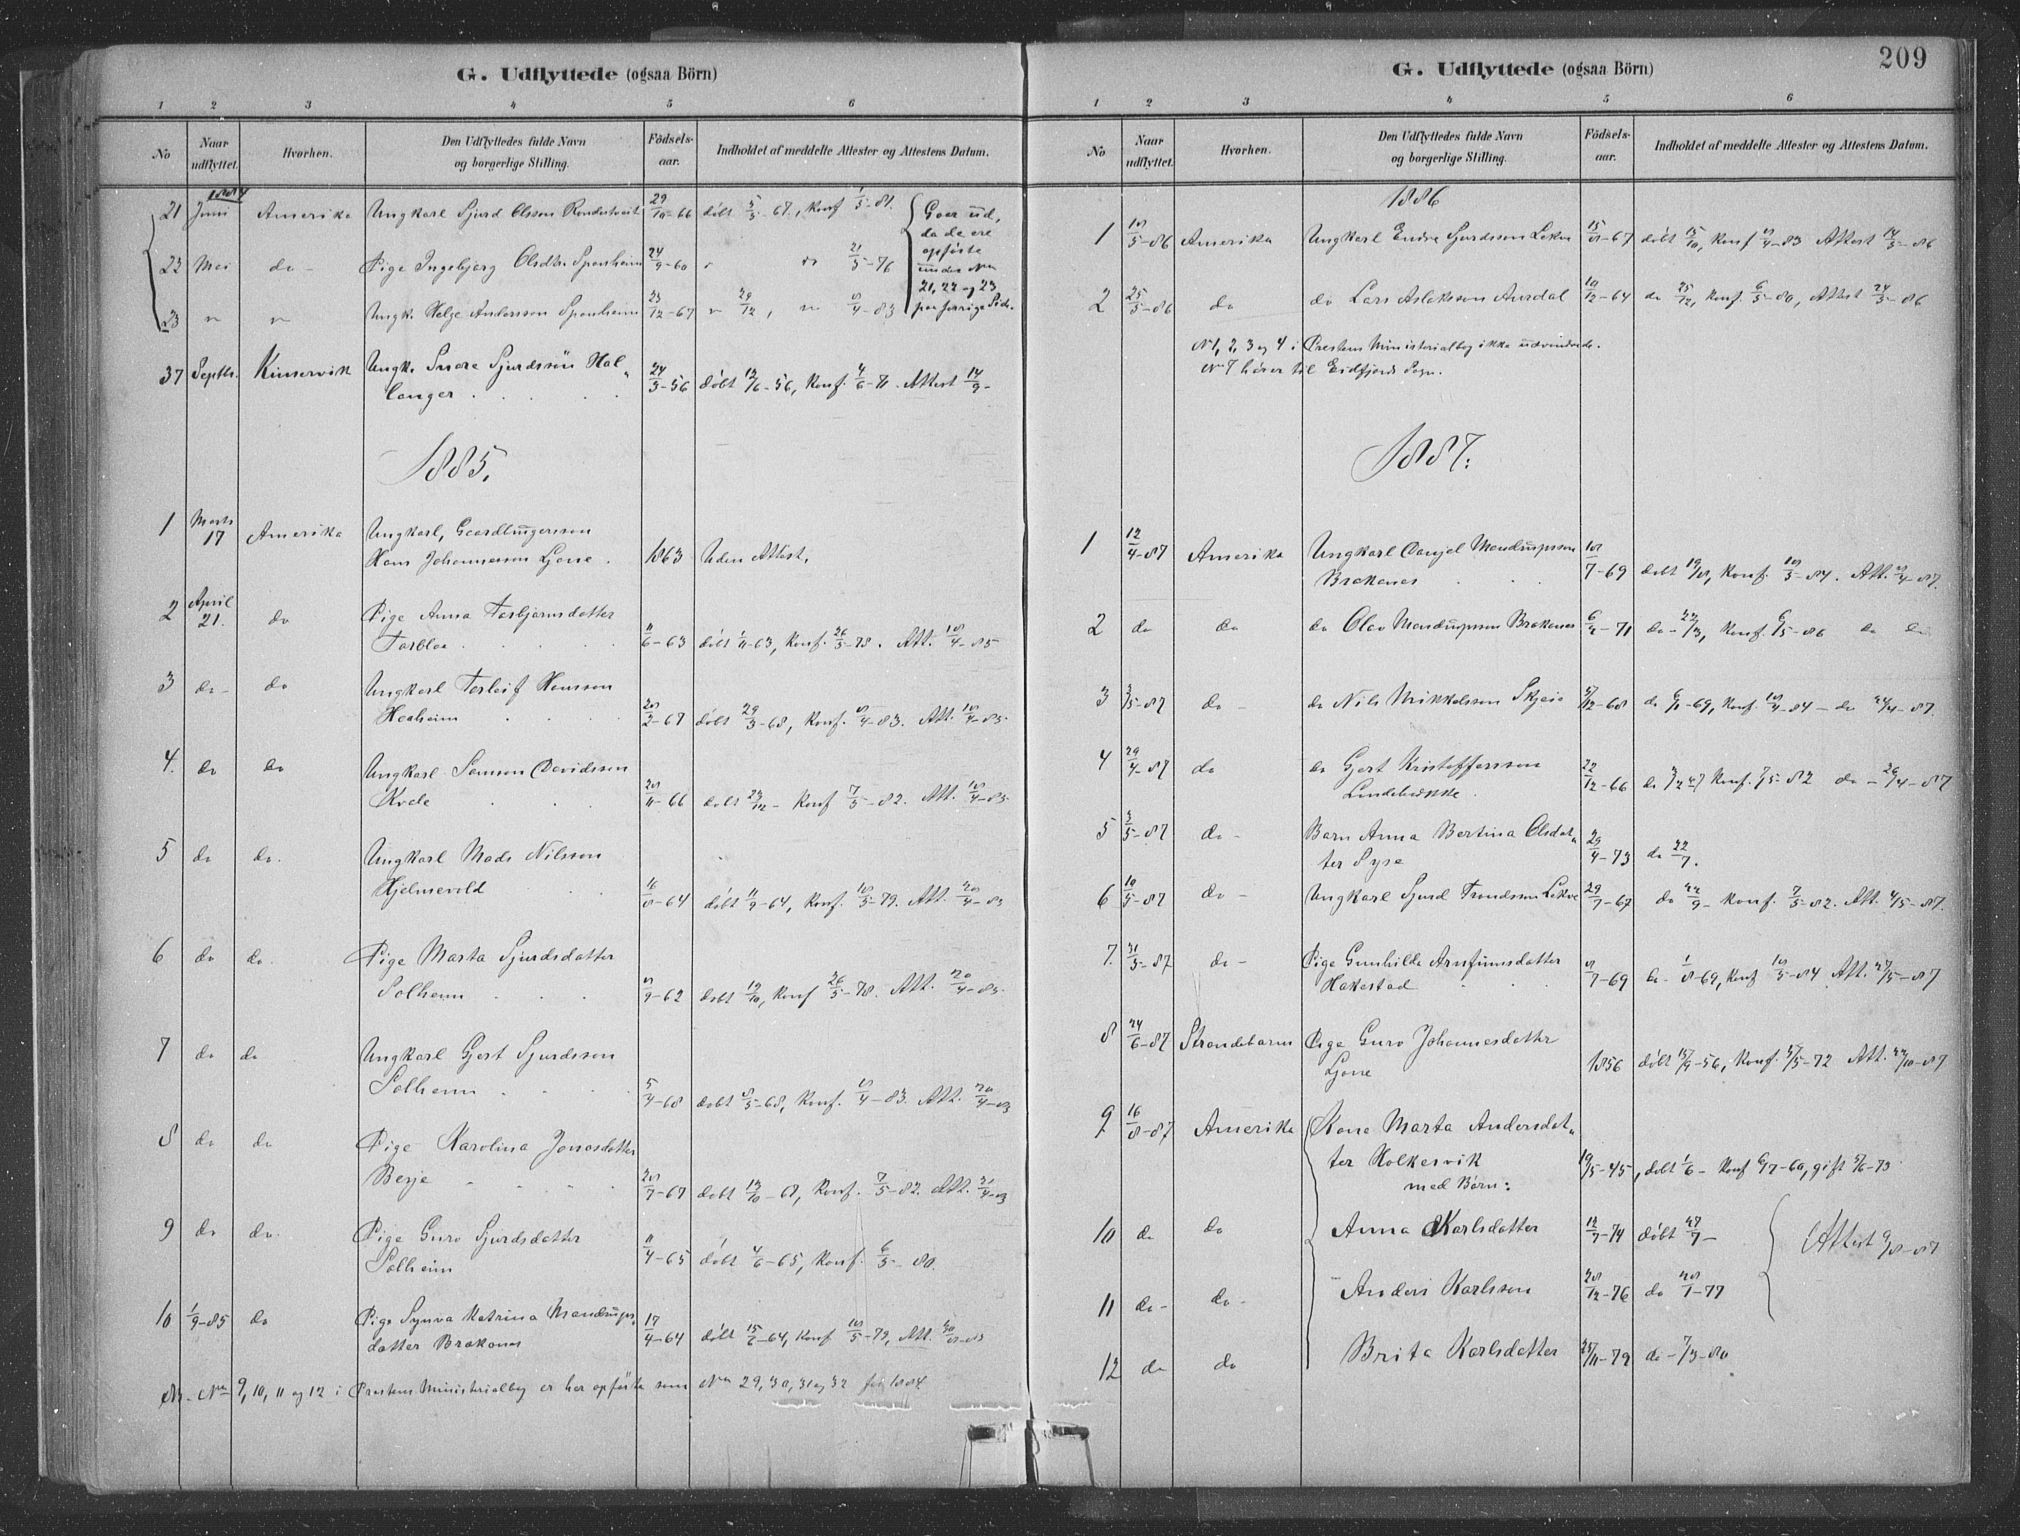 G. Udflyttede (ogsaa Börn)
1 2 3 4 5 6
No
Naar udflyttet.
Hvorhen.
Den Udflyttedes fulde Navn og borgerlige Stilling.
Födsels-aar.
Indholdet af meddelte Attester og Attestens Datum.
1884
21 Juni Amerika Ungkarl Sjurd Olsson 29/10-66 döbt 5/5-67, Konf 1/5-81.
22 Mai do- Pige Ingebjørg Olsdtr. Sponheim 24/9-60 " " 21/5-76
23 " " Ungk. Helge Andersson Sponheim 23/12-67 " 29/12, " 8/4-83
Gaar ud, da de ere opførte under Nrn 21, 22 og 23 paa forrige Side.
37 Septbr. Kinservik Ungk. Snore Sjurdssön Hal-
langer 24/5-56 döbt 12/6-56, Konf. 4/6-71. Attest 14/9-
1885.
1 Marts 17 Amerika Ungkarl,
Hans Johannesson Ljone. 1863 Uden Attest.
2 April 21. do Pige Anna Torbjørnsdatter
Torblaa 11/6-63 döbt 1/11-63, Konf. 26/5-78. Att. 18/4-85
3 do- do Ungkarl Torleif Hansson
Heaheim 28/2-67 döbt 29/3-68, Konf. 8/4-83. Att. 18/4-85.
4. do do Ungkarl Samson Davidsson
Kvale 28/11-66 döbt 23/12- Konf 7/5-82. Att. 18/4-85.
5 do do. Ungkarl Mads Nilsson
Hjelmevold 16/8-64 döbt 11/9-64, Konf. 18/5-79. Att. 20/4-85
6 do do. Pige Marta Sjurdsdatter
Solheim 8/9-62 döbt 12/10, Konf 26/5-78. Att. 20/4-85.
7 do do Ungkarl Gjert Sjurdsson
Solheim 5/4-68 döbt 8/5-68, Konf. 8/4-83. Att. 20/4-85
8 do do Pige Karolina Jonasdatter
Berje 28/7-67 döbt 13/10-67, Konf. 7/5-82. Att. 21/4-85
9 do do. Pige Guro Sjurdsdatter
Solheim 11/4-65 döbt 4/6-65, Konf. 6/5-80.
10 1/9-85 do Pige Synva Katrina Mandrups-
datter Brakanes 17/4-64 döbt 15/5-64, Konf 18/5-79, Att.
NB. Nrn 9, 10, 11 og 12 i Prestens Ministerialbog er her opförte som Nrn 29, 30, 31 og 32 for 1884.
209
G. Udflyttede (ogsaa Börn)
1 2 3 4 5 6
No
Naar udflyttet.
Hvorhen.
Den Udflyttedes fulde Navn og borgerlige Stilling.
Födsels-aar.
Indholdet af meddelte Attester og Attestens Datum.
1886
1 18/5-86 Amerika Ungkarl Endre Sjurdsson Lekve 15/8-67 döbt 15/10, Konf 8/4-83 Attest 14/5-86
2 25/5-86 do do Lars Aslaksson Aurdal 10/12-64 do 25/12, Konf. 6/5-80, Attest 24/5-86
N 1, 2, 3 og 4 i Prestens Ministerialbog ikke udvandrede.
N 7 hörer til Eidfjords Sogn.
1887.
1 12/4-87 Amerika Ungkarl Danjel Mandrupsson
Brakanes 18/7-69 döbt 19/8, Konf. 18/5-84. Att. 8/4-87.
2 do do do Olav Mandrupsson Brakanes 6/2-71 do- 22/3, Konf. 6/5-86 do do
3 3/5-87 do- do Nils Mikkelsson Skjeie 27/12-68 do 6/1-69, Konf. 18/4-84 - do 24/4-87.
4 29/4-87 do do Gjert Kristoffersson
Lindebrekke. 22/12-66 do Konf. 7/5-82 do- 26/4-87
5 3/5-87 do- Barn Anna Bertina Olsdat-
ter Syse 29/4-73 do 22/7.
6 10/5-87 do- Ungkarl Sjurd Trondsson Lekve 29/7-67 do 22/9- Konf. 7/5-82. Att. 4/5-87.
7. 31/5-87 do- Pige Gunhilda Arnfinnsdatter
Hakestad 8/7-69 do- 1/8-69, Konf 18/5-84 Att. 27/5-87
8 24/6-87 Strandebarm Pige Guro Johannesdatter
Ljone 1856 döbt 15/9-56, Konf. 27/5-72 Att. 22/10-87
9 16/8-87 Amerika Kone Marta Andersdat-
ter Holkesvik
med Börn: 19/5-45, döbt 1/6- Konf 6/7-60, gift 27/6-73
10 do do Anna Karlsdatter 12/7-74 döbt 27/7-
Attest 9/8-87
11 do- do- Anders Karlsson 28/12-76 do 28/1-77
12 do do Brita Karlsdatter 25/11-79 do- 7/3-80